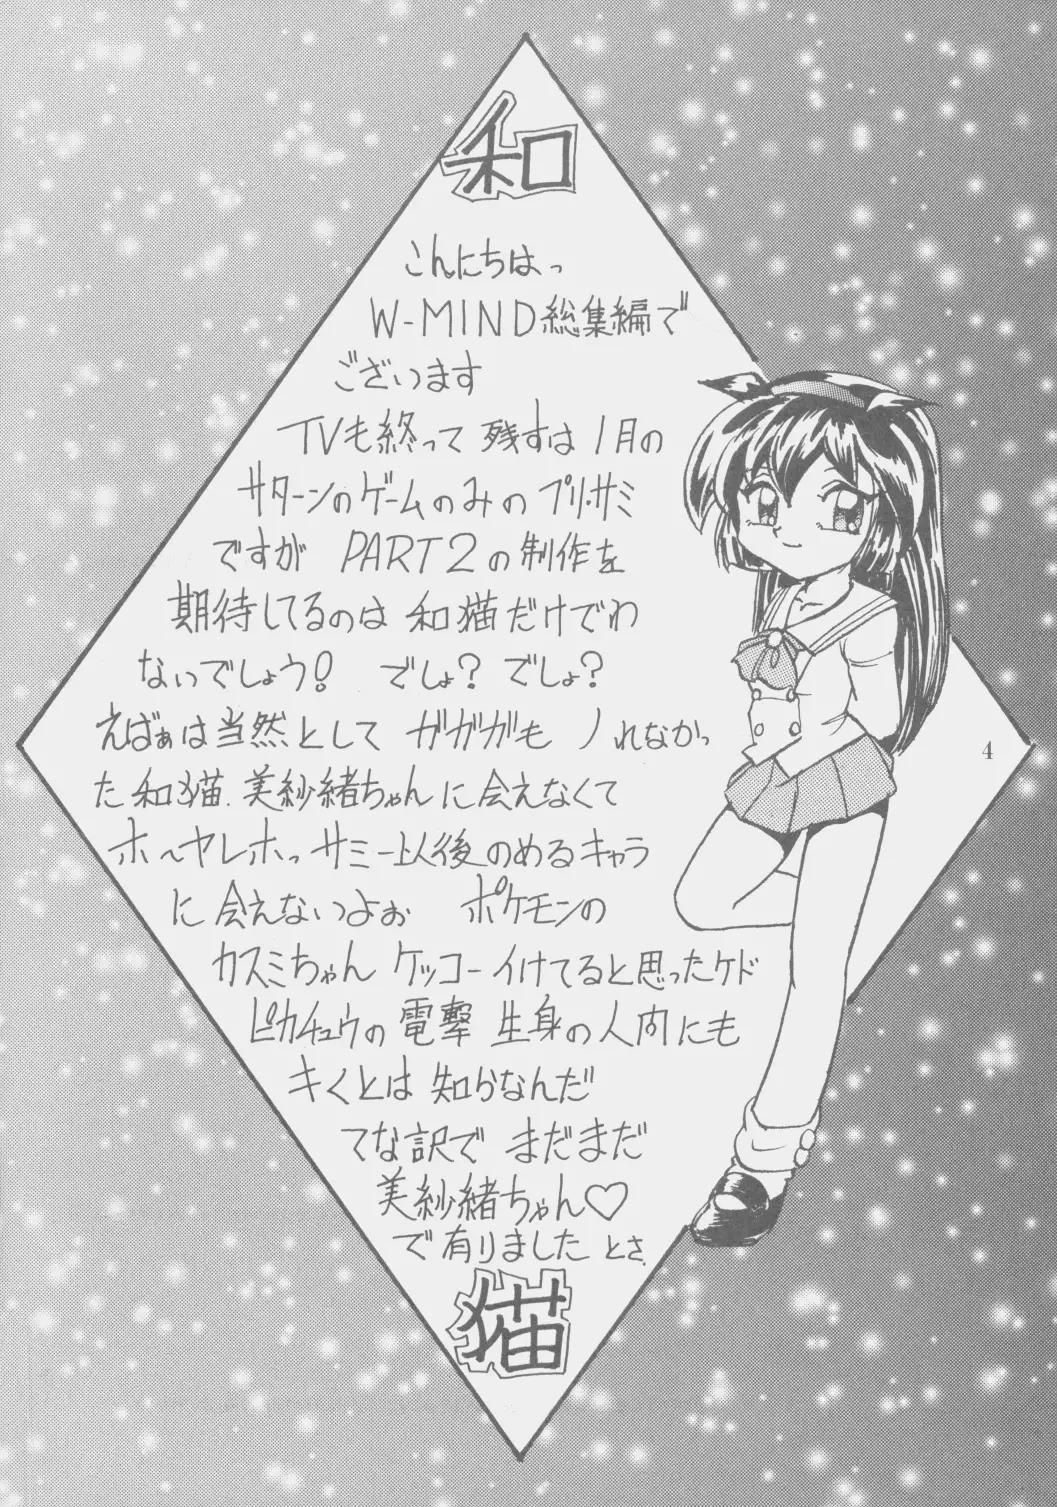 和
こんにちはっ
W-MIND総集編で
ございます
TVも終って 残すは 1月の
サターンのゲームのみの プリ・サミ
ですが PART2の制作を
期待してるのは 和猫だけでわ
ないでしょう! でしょ? でしょ?
えばぁは当然として ガガガも ノれなかっ
た和猫. 美紗緒ちゃんに会えなくて
ホ〜ヤレホっ サミー以後のめるキャラ
に会えないっよぉ ポケモンの
カスミちゃん ケッコーイけてると思ったケド
ピカチュウの電撃 生身の人間にも
キくとは 知らなんだ
てな訳で まだまだ
美紗緒ちゃん♡
で有りました とさ.
猫
4